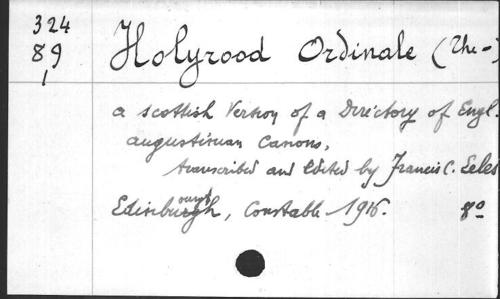 324
89
1
Holyrood Ordinale (The -)
a scottish Version of a Directory of Engl.
augustinian Canons,
transcribed and Edited by Francis C. Eeles
Edinburgh, Constable 1916. 8º